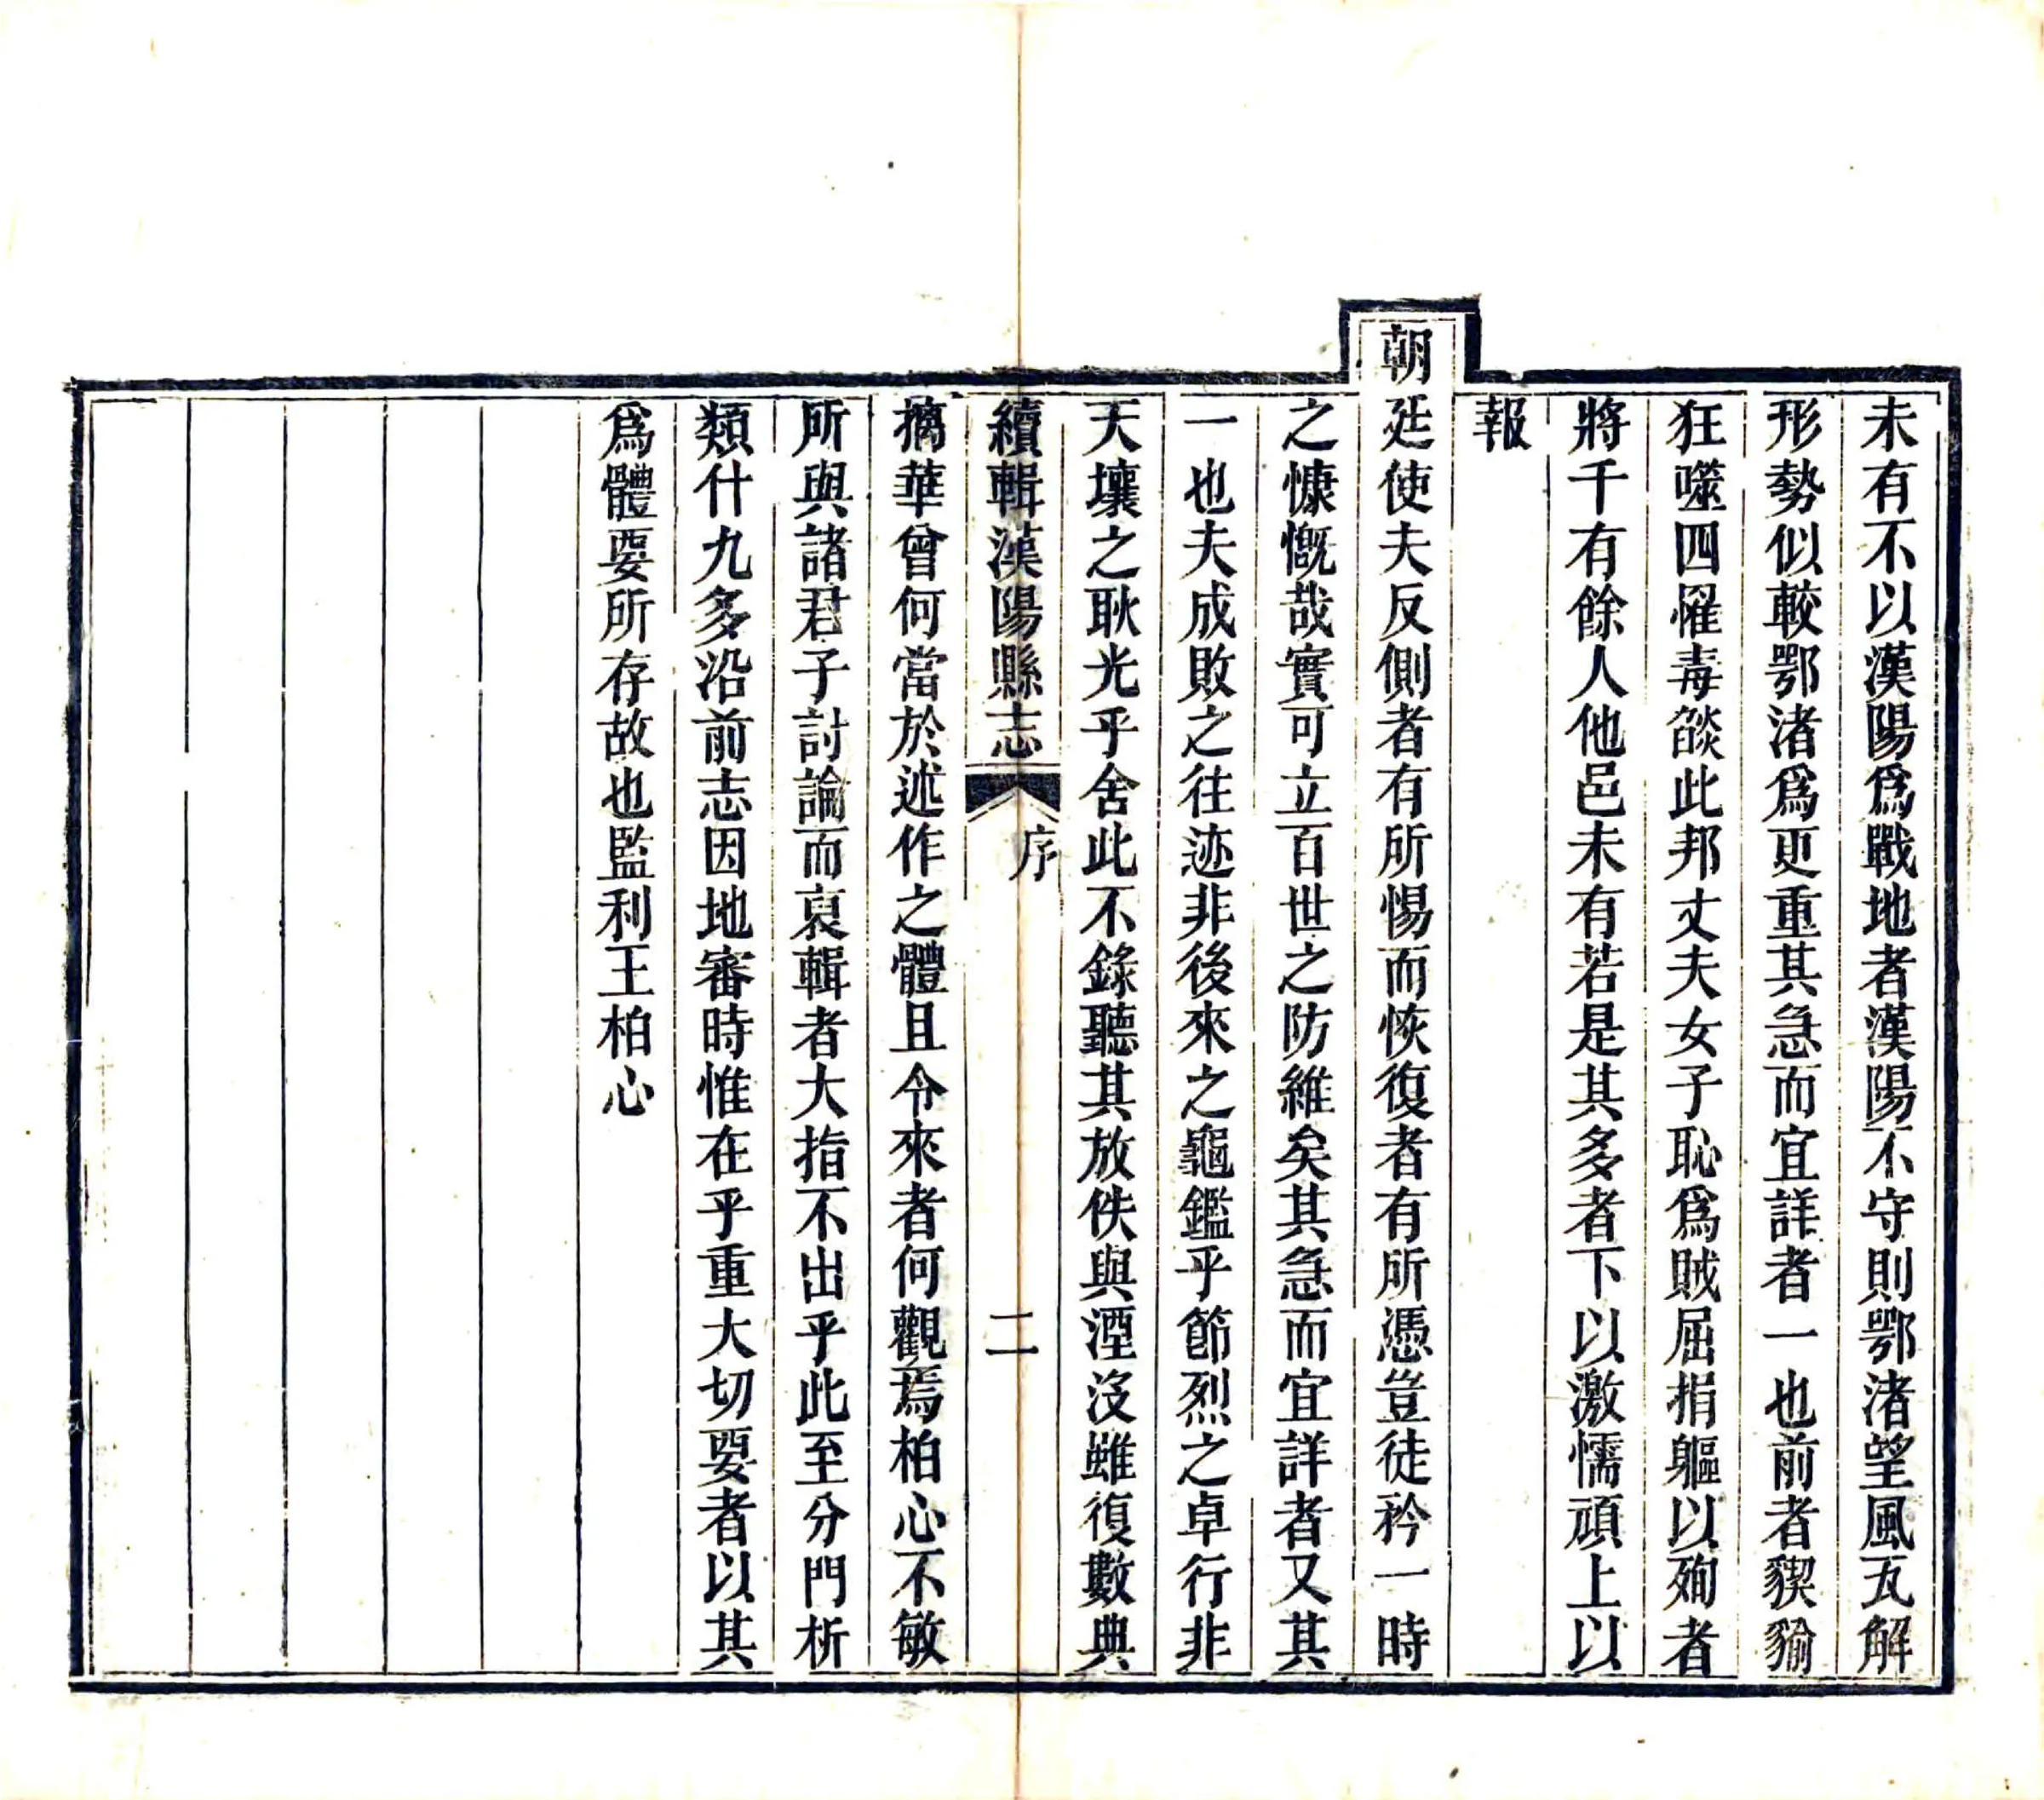 未有不以漢陽爲戰地者漢陽不守則鄂渚望風瓦解
形勢似較鄂渚爲更重其急而宜詳者一也前者猰貐
狂噬四罹毒燄此邦丈夫女子恥爲賊屈捐軀以殉者
將千有餘人他邑未有若是其多者下以激懦頑上以
報
朝廷使夫反側者有所惕而恢復者有所憑豈徒矜一時
之慷慨哉實可立百世之防維矣其急而宜詳者又其
一也夫成敗之往迹非後來之龜鑑乎節烈之卓行非
天壤之耿光乎舍此不錄聽其放佚與湮沒雖復數典
續輯漢陽縣志
序
二
摛華曾何當於述作之體且令來者何觀焉柏心不敏
所與諸君子討論而裒輯者大指不出乎此至分門析
類什九多沿前志因地審時惟在乎重大切要者以其
爲體要所存故也監利王柏心